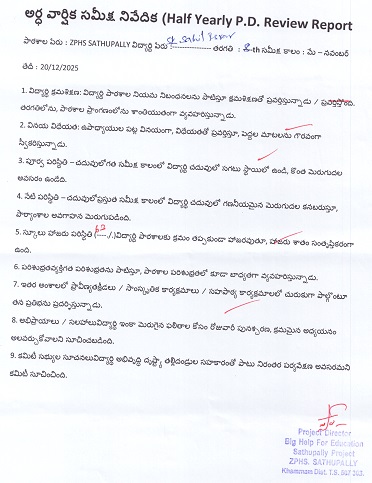 అర్ధ వార్షిక సమీక్ష నివేదిక (Half Yearly P.D. Review Report
పాఠశాల పేరు : ZPHS SATHUPALLY విద్యార్థి పేరు :---------------- తరగతి : 8th సమీక్ష కాలం : మే – నవంబర్
తేదీ : 20/12/2025
1. విద్యార్థి క్రమశిక్షణ: విద్యార్థి పాఠశాల నియమ నిబంధనలను పాటిస్తూ క్రమశిక్షణతో ప్రవర్తిస్తున్నాడు / ప్రవర్తిస్తోంది.
తరగతిలోను, పాఠశాల ప్రాంగణంలోను శాంతియుతంగా వ్యవహరిస్తున్నాడు.
2. వినయ విధేయత: ఉపాధ్యాయుల పట్ల వినయంగా, విధేయతతో ప్రవర్తిస్తూ, పెద్దల మాటలను గౌరవంగా
స్వీకరిస్తున్నాడు.
3. పూర్వ పరిస్థితి – చదువులోగత సమీక్ష కాలంలో విద్యార్థి చదువులో సగటు స్థాయిలో ఉండి, కొంత మెరుగుదల
అవసరం ఉండేది.
4. నేటి పరిస్థితి – చదువులోప్రస్తుత సమీక్ష కాలంలో విద్యార్థి చదువులో గణనీయమైన మెరుగుదల కనబరుస్తూ,
పాఠ్యాంశాల అవగాహన మెరుగుపడింది.
5. స్కూలు హాజరు పరిస్థితి (----/.)విద్యార్థి పాఠశాలకు క్రమం తప్పకుండా హాజరవుతూ, హాజరు శాతం సంతృప్తికరంగా
ఉంది.
6. పరిశుభ్రతవ్యక్తిగత పరిశుభ్రతను పాటిస్తూ, పాఠశాల పరిశుభ్రతలో కూడా బాధ్యతగా వ్యవహరిస్తున్నాడు.
7. ఇతర అంశాలలో ప్రావీణ్యతక్రీడలు / సాంస్కృతిక కార్యక్రమాలు / సహపాఠ్య కార్యక్రమాలలో చురుకుగా పాల్గొంటూ
తన ప్రతిభను ప్రదర్శిస్తున్నాడు.
8. అభిప్రాయాలు / సలహాలువిద్యార్థి ఇంకా మెరుగైన ఫలితాల కోసం రోజువారీ పునశ్చరణ, క్రమమైన అధ్యయనం
అలవర్చుకోవాలని సూచించబడింది.
9. కమిటీ సభ్యుల సూచనలువిద్యార్థి అభివృద్ధి దృష్ట్యా తల్లిదండ్రుల సహకారంతో పాటు నిరంతర పర్యవేక్షణ అవసరమని
కమిటీ సూచించింది.
Project Director
Big Help For Education
Sathupally Project
ZPHS. SATHUPALLY
Khammam Dist. T.S. 507 303.